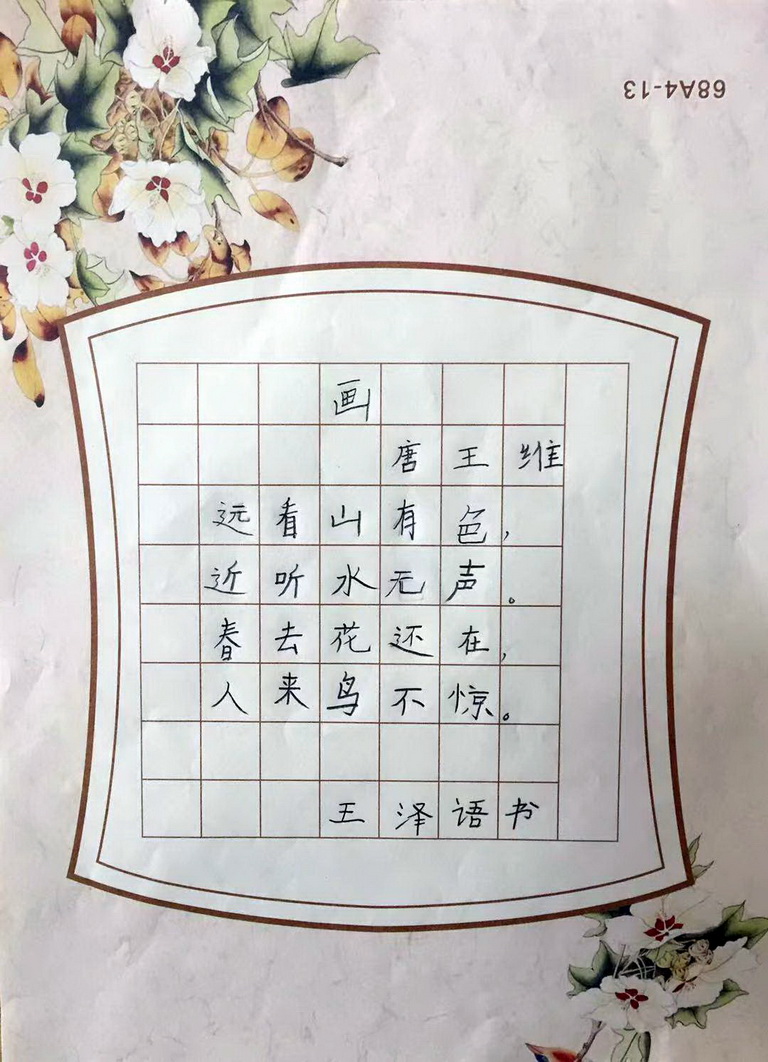 68A4-13
画
唐王维
远看山有色,
近听水无声。
春去花还在,
人来鸟不惊。
王泽语书